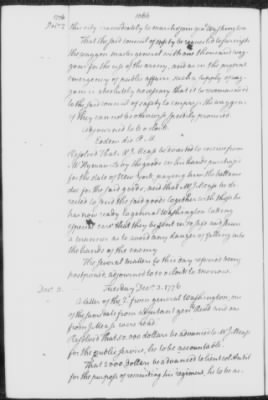 1776
1066
Dec. 2
this city immediately to march & join gen. Washington
That the said council of safety be requested to furnish
the waggon master general with one thousand wag-
gons for the use of the army, and as in the present
emergency of public affairs such a supply of wag-
gons is absolutely necessary that it is recommended
to the said council of safety to impress the waggons
if they can not be otherwise speedily procured
Adjourned to 5 o'clock.
Eodem die P.M.
Resolved That Mr. J. Mease be directed to receive from
Mr. Hyman by the goods on his hands purchased
for the state of New York, paying him the balance
due for the said goods, and that Mr. J. Mease be di-
rected to send the said goods together with those he
has now ready to general Washington taking
special care that they be sent in such
a manner as to avoid any danger of falling into
the hands of the enemy.
The several matters to this day referred being
postponed, adjourned to 10 o'clock to morrow.
Dec. 3.
Tuesday Decr. 3. 1776
A letter of the 1. from general Washington, one
of the same date from adjutant genl. Reed and one
from J. Mease were read.
Resolved That 50,000 dollars be advanced to Mr. J. Mease
for the public service, he to be accountable.
That 2000 dollars be advanced to lieut. col.
for the purpose of recruiting his regiment, he to be ac-